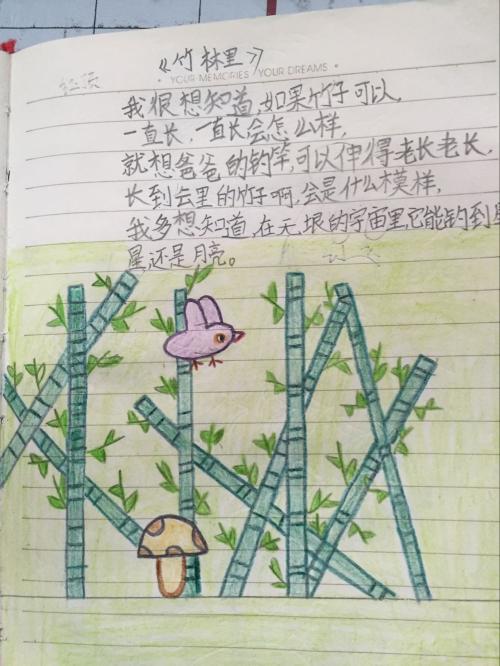 《竹林里》
YOUR MEMORIES YOUR DREAMS
我很想知道,如果竹子可以,
一直长,一直长会怎么样,
就想爸爸的钓竿,可以伸得老长老长,
长到云里的竹子啊,会是什么模样,
我多想知道,在无垠的宇宙里,它能钓到星
星还是月亮。